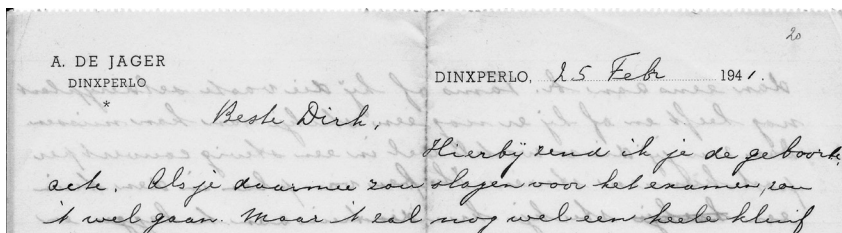 20
A. DE JAGER
DINXPERLO
*
DINXPERLO, 25 Febr 1941.
Beste Dirk,
Hierbij zend ik je de geboorte
acte. Als je daarmee zou slagen voor het examen, zou
't wel gaan. Maar 't zal nog wel een heele kluif